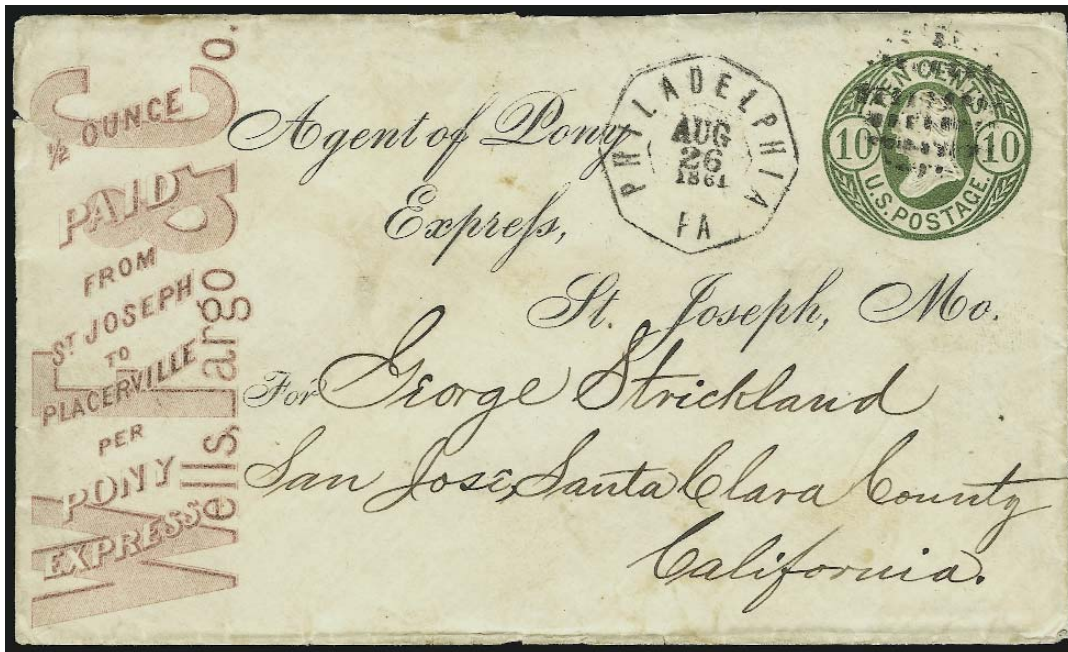 ½ OUNCE
PAID
FROM
ST JOSEPH
TO
PLACERVILLE
PER
PONY
EXPRESS
W F & Co.
Wells, Fargo
PHILADELPHIA
AUG
26
1861
PA
TEN CENTS
10 10
U.S. POSTAGE.
Agent of Pony
Express,
St. Joseph, Mo.
For George Strickland
San José, Santa Clara County
California.